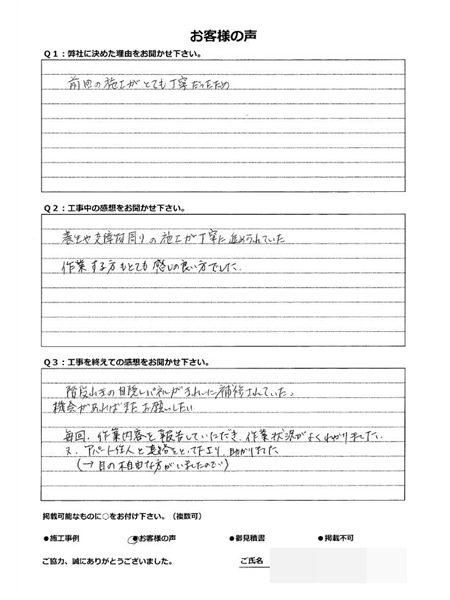 お客様の声
Q1：弊社に決めた理由をお聞かせ下さい。
前回の施工がとても丁寧だったため
Q2：工事中の感想をお聞かせ下さい。
養生や支障物周りの施工が丁寧に進められていた
作業する方もとても感じの良い方でした。
Q3：工事を終えての感想をお聞かせ下さい。
階段の目隠しパネルがきれいに補修されていた。
機会があればまたお願いしたい
毎回、作業内容を報告していただき、作業状況がよくわかりました。
又、アパート住人と連絡をとって下さり、助かりました
（→目の不自由な方がいましたので）
掲載可能なものに○をお付け下さい。（複数可）
●施工事例 ●お客様の声 ●御見積書 ●掲載不可
ご協力、誠にありがとうございました。 ご氏名